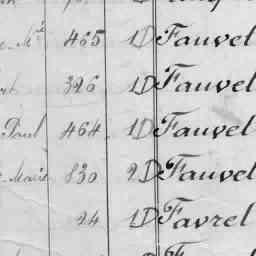 465 1D Fauvel
326 1D Fauvel
Paul 464 1D Fauvel
Marie 830 2D Fauvel
24 1D Favrel